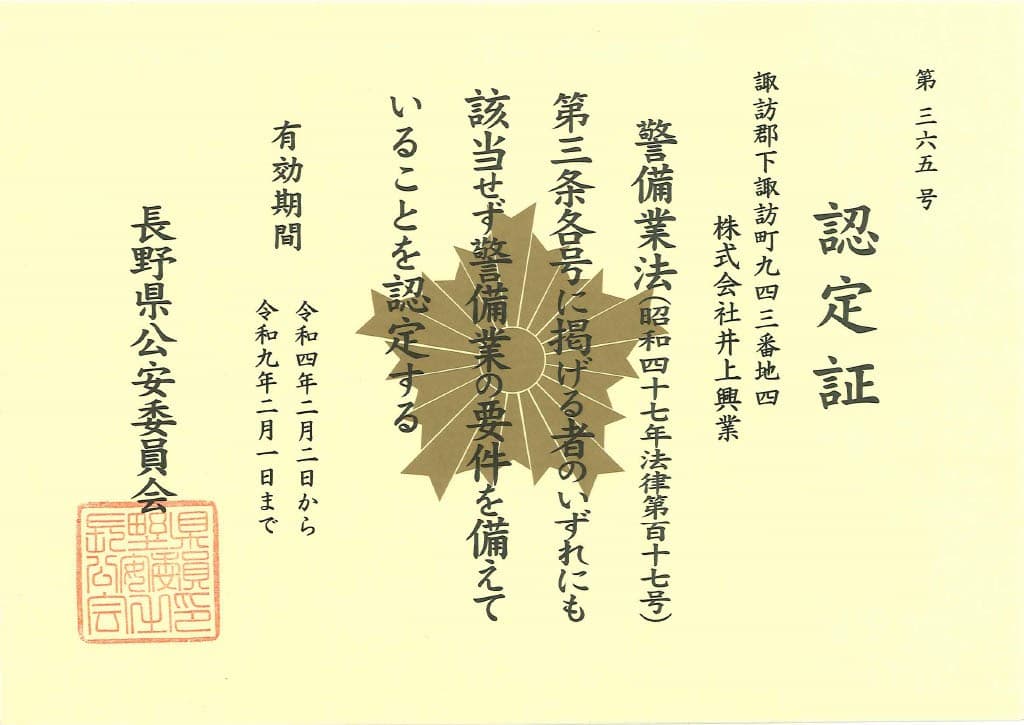 第三六五号
認定証
諏訪郡下諏訪町九四三番地四
株式会社井上興業
警備業法(昭和四十七年法律第百十七号)
第三条各号に掲げる者のいずれにも
該当せず警備業の要件を備えて
いることを認定する
有効期間
令和四年二月二日から
令和九年二月一日まで
長野県公安委員会
長野県公安委員会印